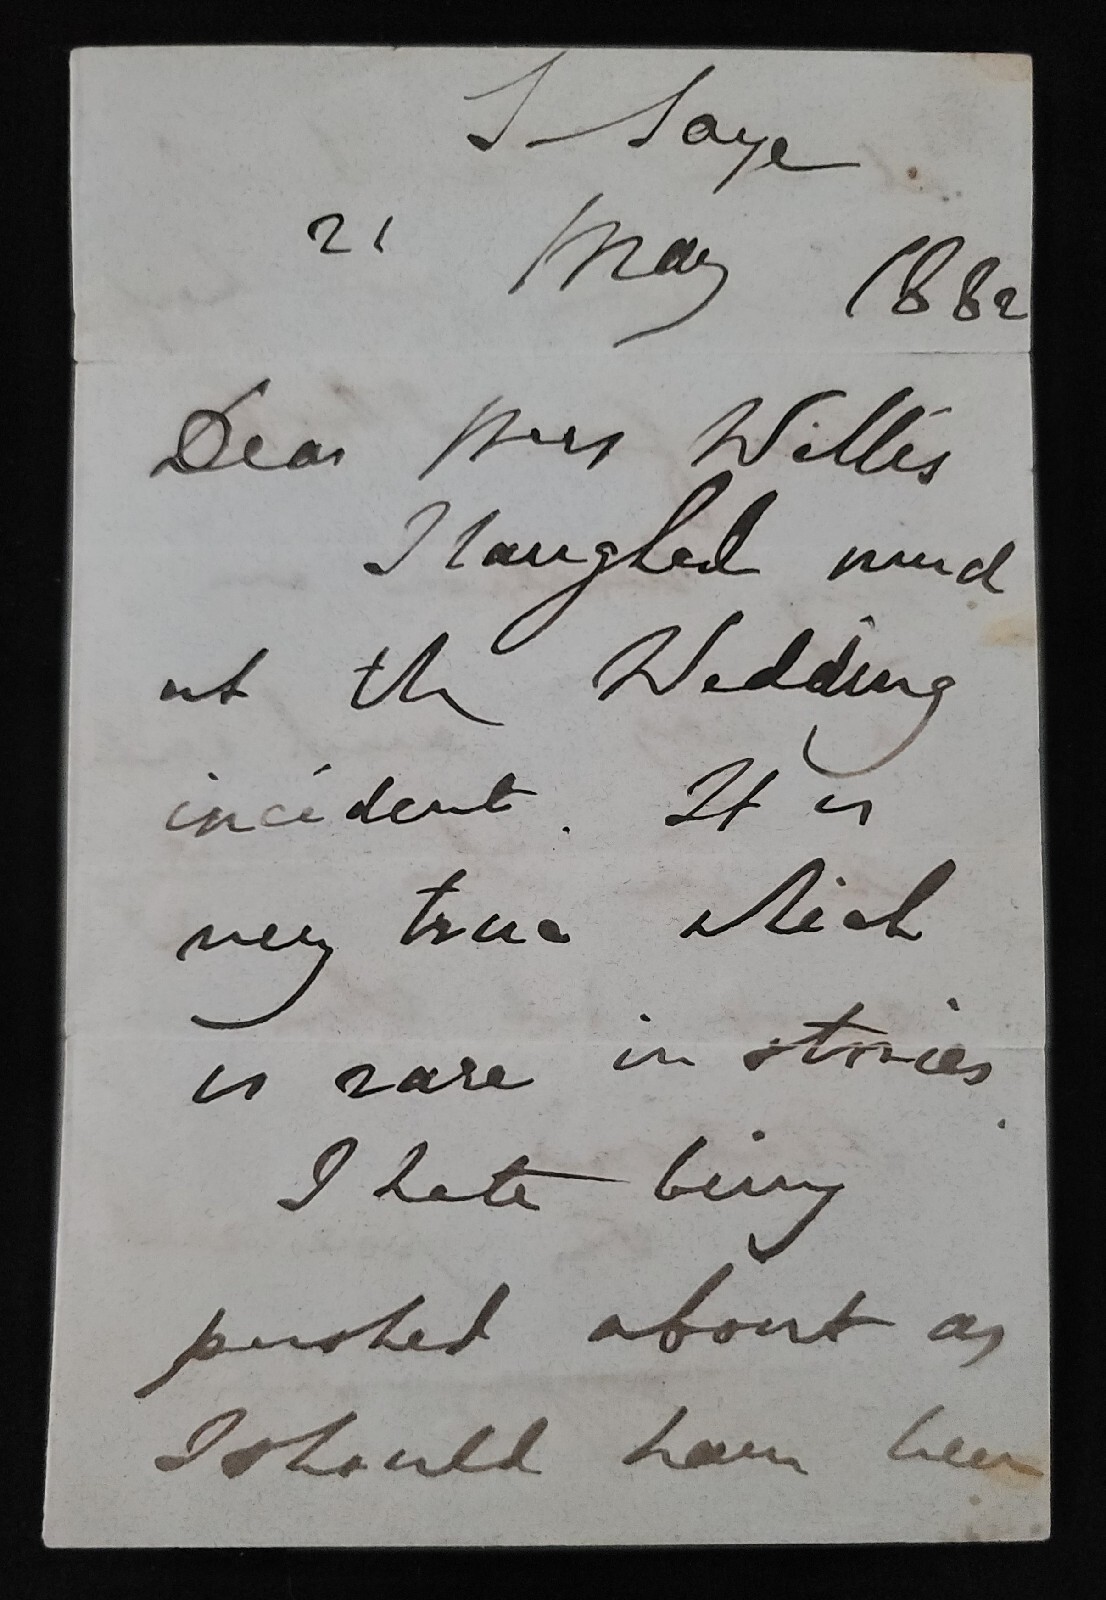 21 May 1882
Dear Mrs Willis
I laughed much
at the Wedding
incident. It is
very true which
is rare in stories.
I hate being
pushed about as
I should have been